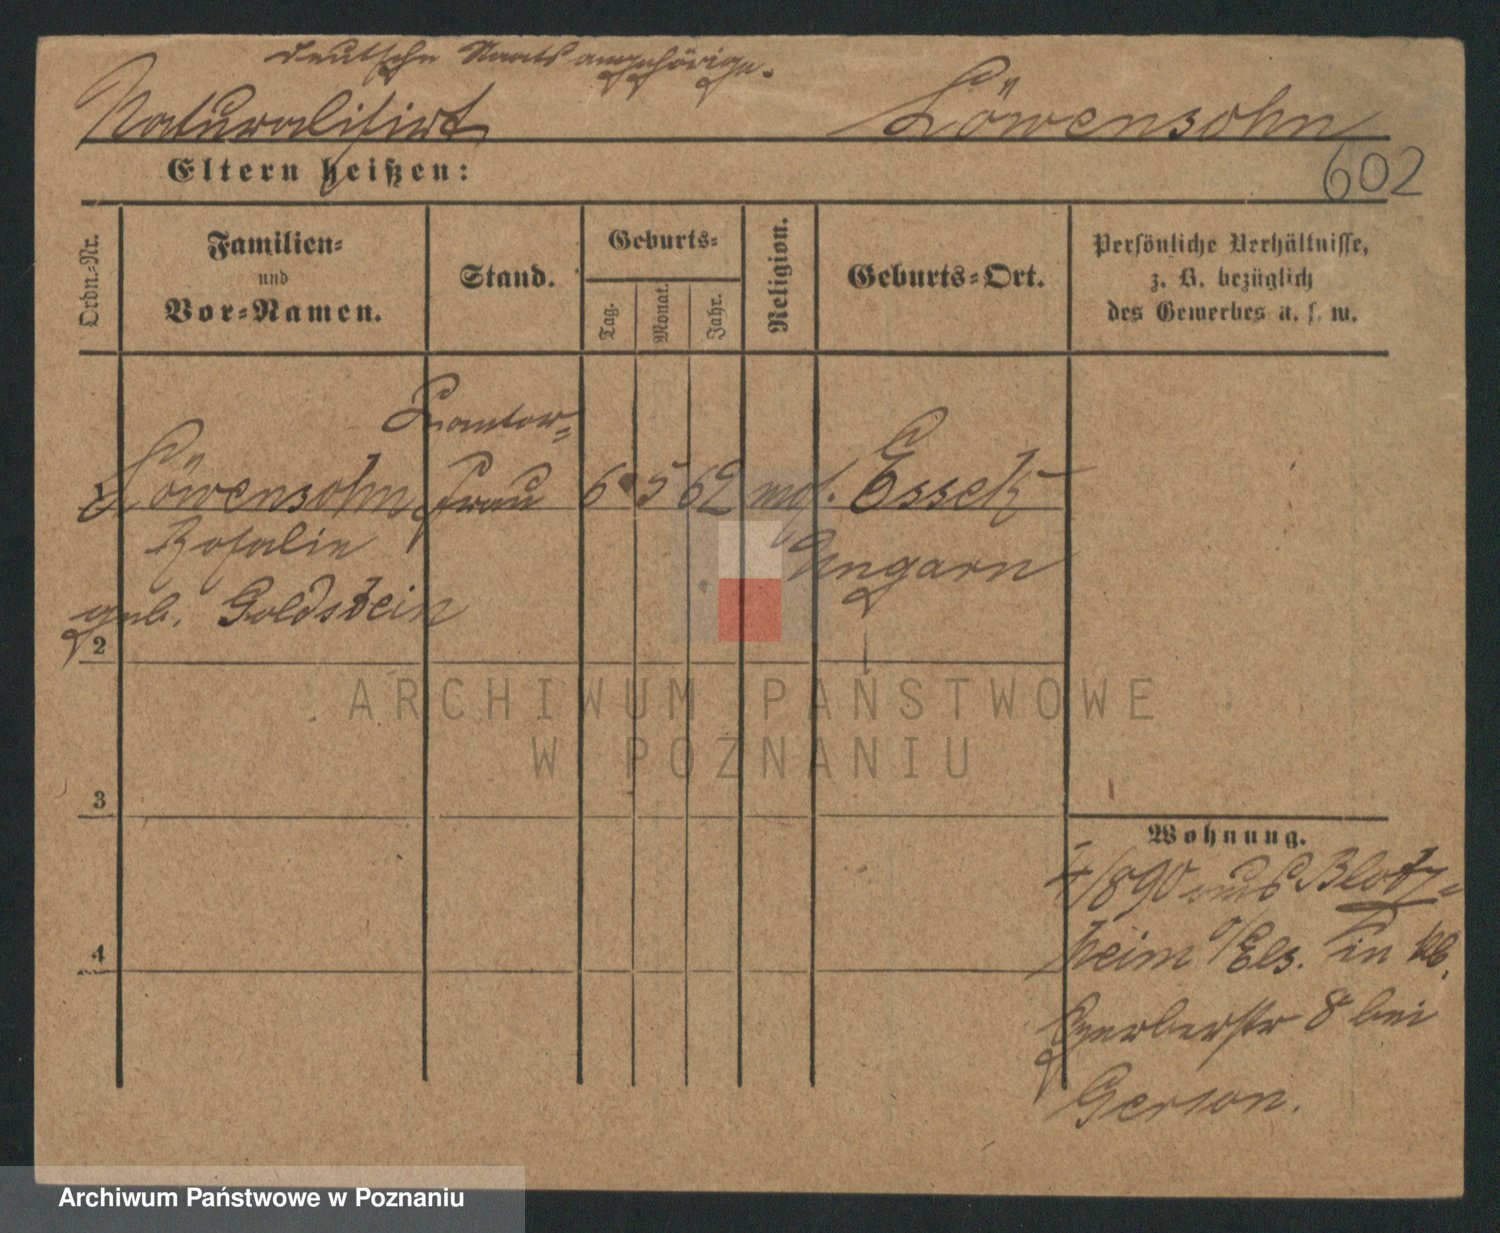 Deutsche Staatsangehörige.
Naturalisirt Löwensohn
602
Eltern heißen:
Ordn.-Nr.
Familien-
und
Vor-Namen.
Stand.
Geburts-
Tag.
Monat.
Jahr.
Religion.
Geburts-Ort.
Persönliche Verhältnisse,
z. B. bezüglich
des Gewerbes u. s. w.
Kantor-
Löwensohn Frau 6 5 62 mos. Essek
Rosalie Ungarn
geb. Goldstein
2
3
4
Wohnung.
4/890 aus Blotz-
heim i/Els. in
Gerberstr 8 bei
Gerson.
ARCHIWUM PAŃSTWOWE
W POZNANIU
Archiwum Państwowe w Poznaniu